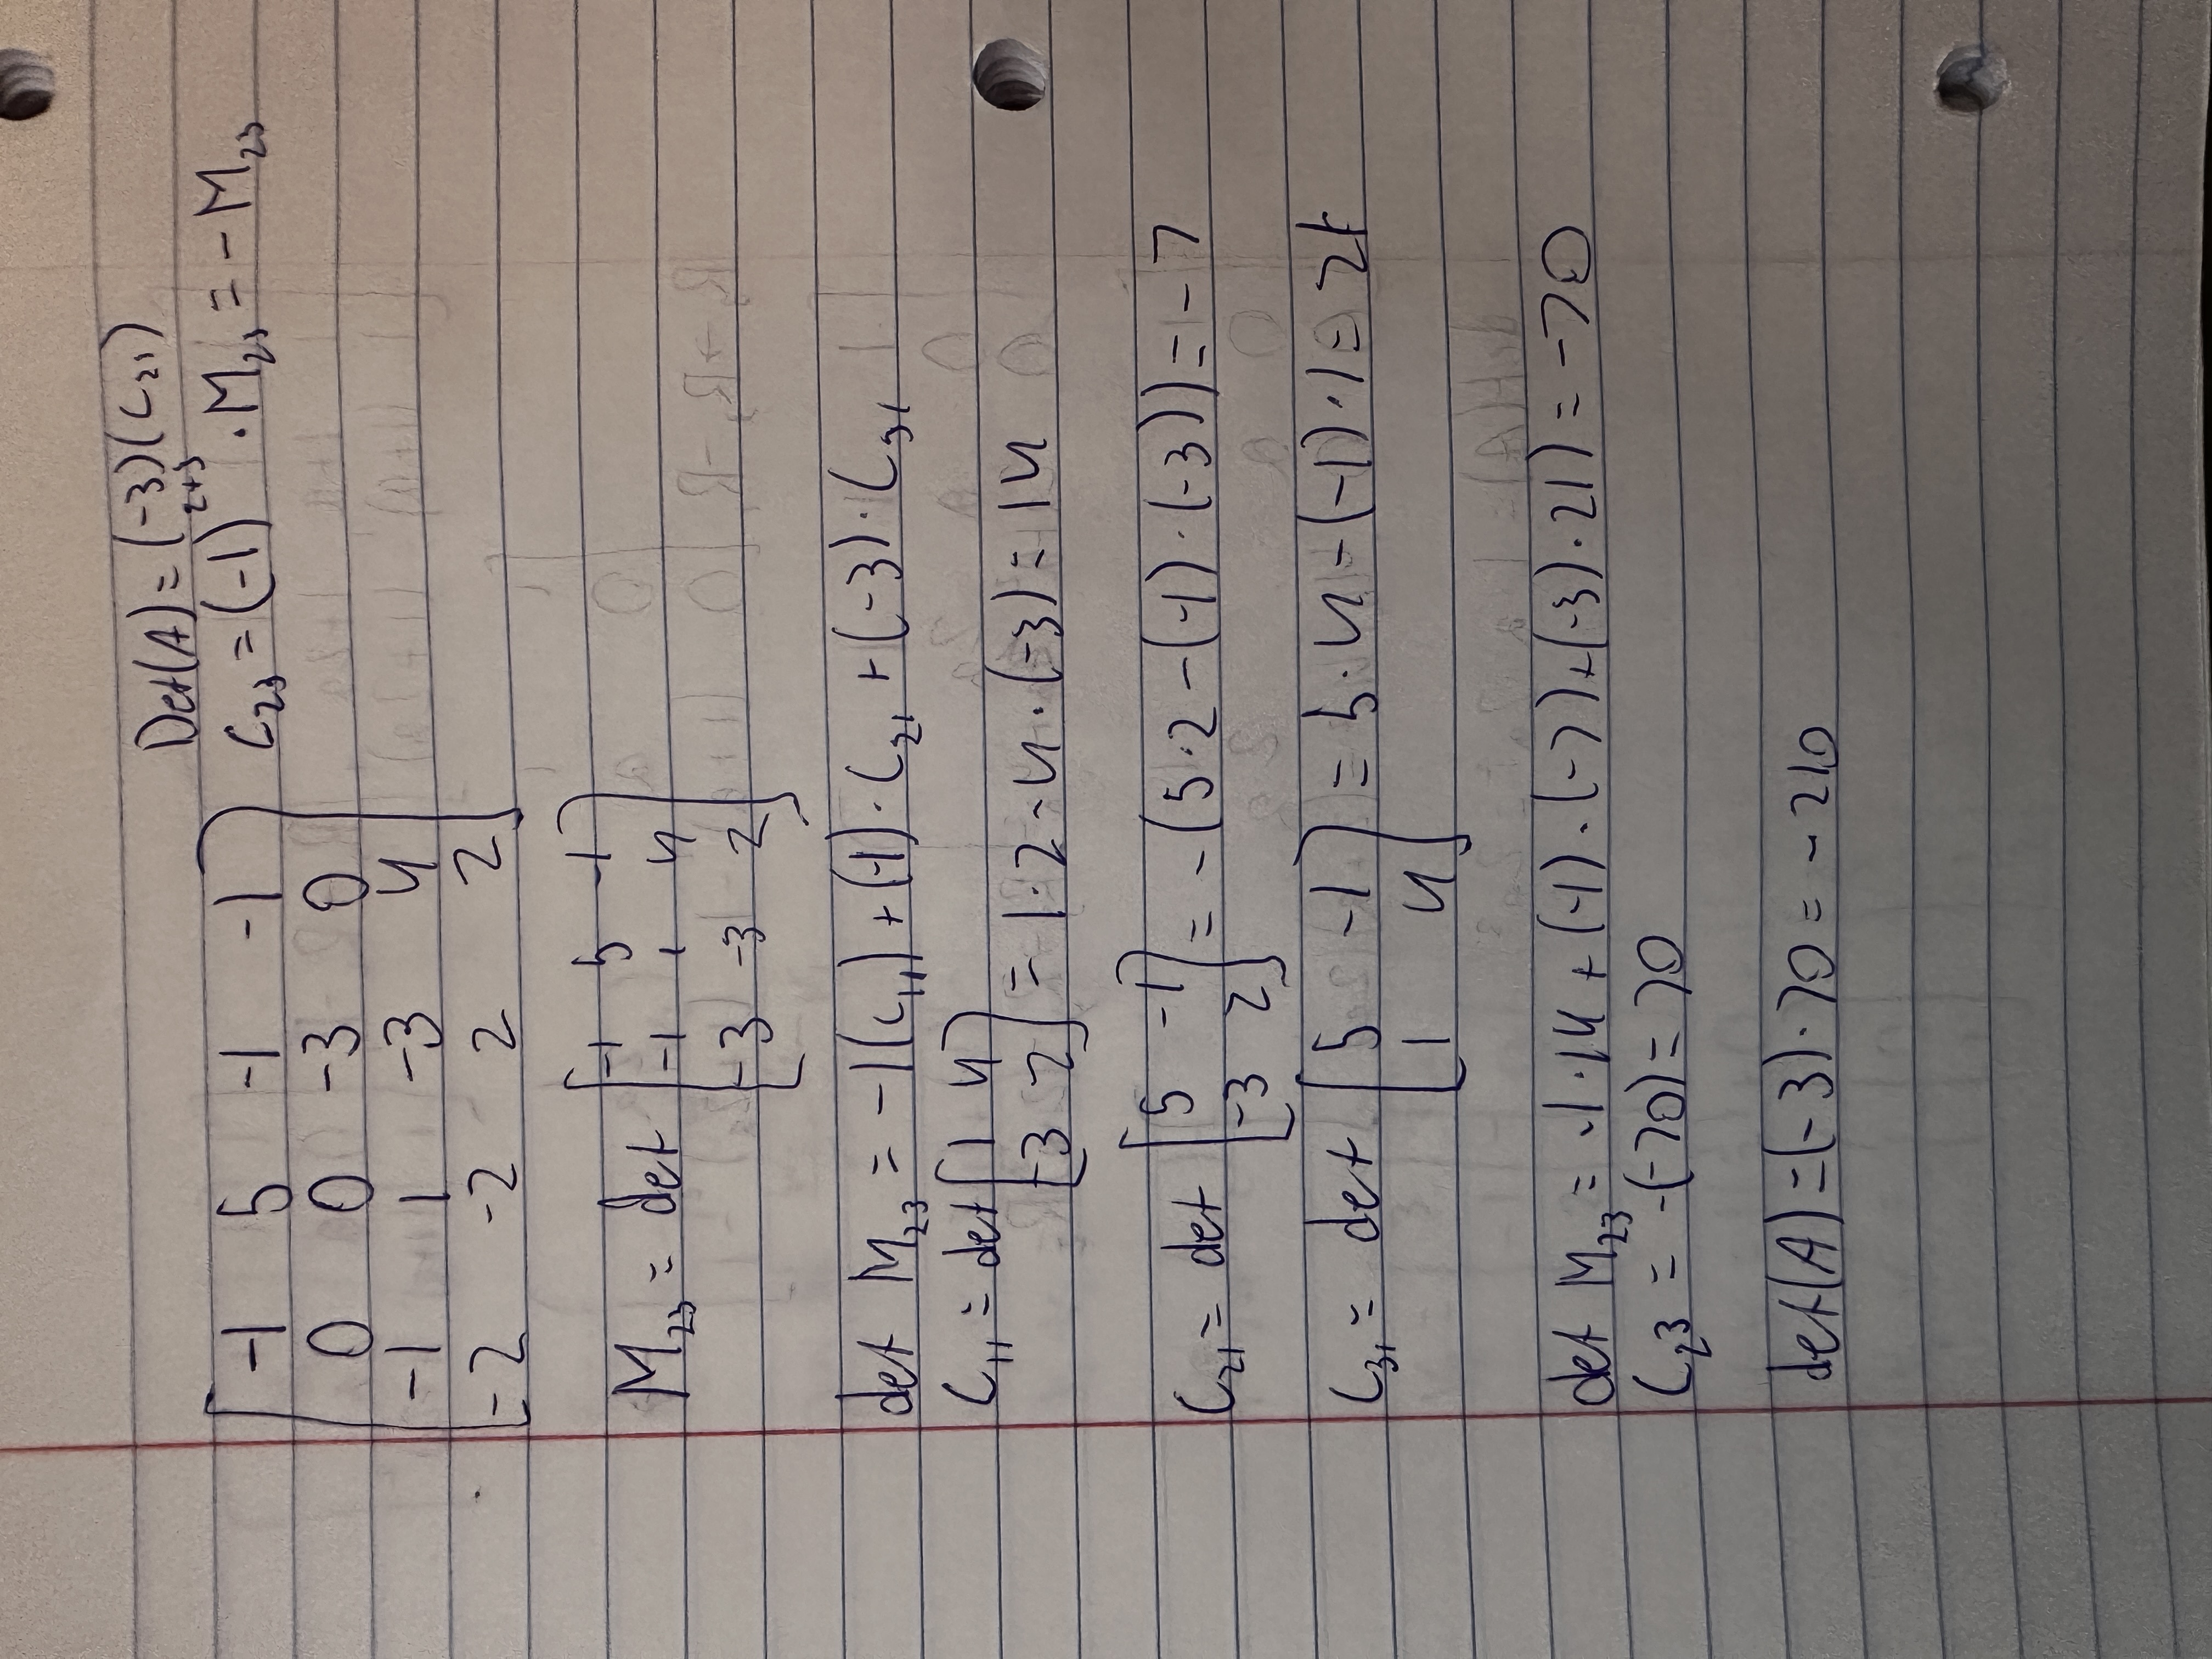 Det(A) = (-3)(C₂₃)
C₂₃ = (-1)²⁺³ · M₂₃ = - M₂₃
[ -1 5 -1 -1 ]
[ 0 0 -3 0 ]
[ -1 1 -3 4 ]
[ -2 -2 2 2 ]
M₂₃ = det [ -1 5 -1 ]
[ -1 1 4 ]
[ -3 -3 2 ]
det M₂₃ = -1(C₁₁) + (-1)· C₂₁ + (-3)· C₃₁
C₁₁ = det [ 1 4 ]
[ -3 2 ] = 1·2 - 4·(-3) = 14
C₂₁ = det [ 5 -1 ] = -(5·2 - (-1)·(-3)) = -7
[ -3 2 ]
C₃₁ = det [ 5 -1 ] = 5·4 - (-1)·1 = 21
[ 1 4 ]
det M₂₃ = -1·14 + (-1)·(-7) + (-3)·21) = -70
C₂₃ = -(-70) = 70
det(A) = (-3)·70 = -210